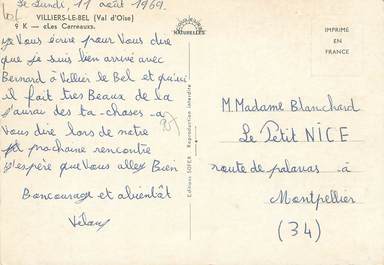 Le Lundi, 11 août 1969.
VILLIERS-LE-BEL (Val d'Oise)
9 K — «Les Carreaux».
COULEURS NATURELLES
IMPRIMÉ
EN
FRANCE
je Vous écrire pour Vous dire
que je suis bien arrivé avec
Bernard à Villier le Bel et qu'ici
il fait tres Beaux de la
j'aurai des ta-chases-a
Vous dire lors de notre
prochaine rencontre
j'espère que Vous allez Bien
Boncourage et abientôt
Editions SOFER — Reproduction interdite
M. Madame Blanchard
Le Petit NICE
route de palavas - à
Montpellier
(34)